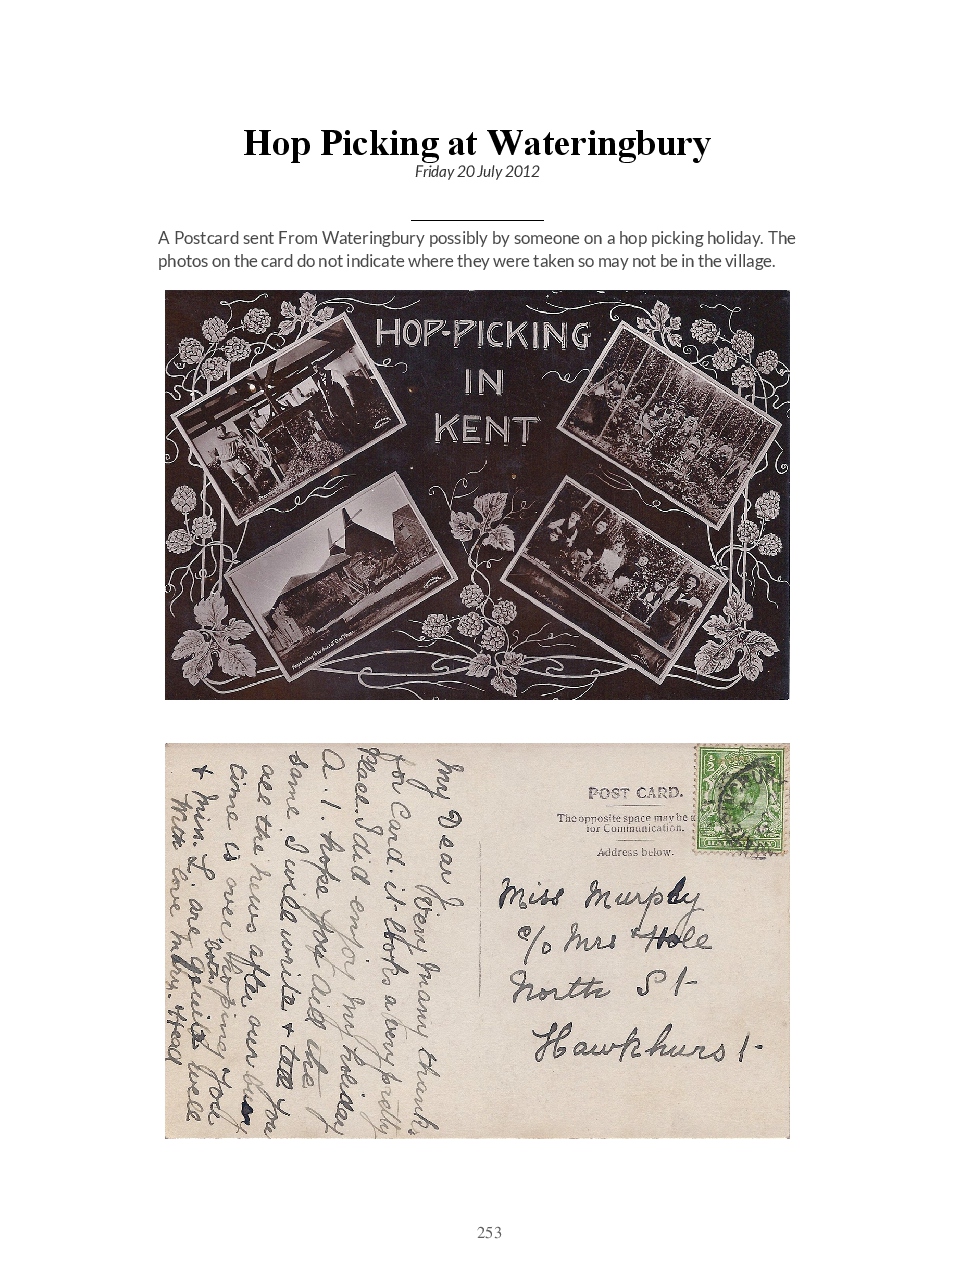 Hop Picking at Wateringbury
Friday 20 July 2012
A Postcard sent From Wateringbury possibly by someone on a hop picking holiday. The
photos on the card do not indicate where they were taken so may not be in the village.
HOP-PICKING
IN
KENT
My Dear J
Very many thanks
for Card. it looks a very pretty
place. I did enjoy my holiday
a. 1. hope you did the
same. I will write & tell you
all the news after our busy
time is over, hoping you
& Miss. L. are both quite well
With love Mary. Head
POST CARD.
The opposite space may be u
for Communication.
Address below.
HALFPENNY
Miss Murphy
c/o Mrs Hole
North St
Hawkhurst-
253